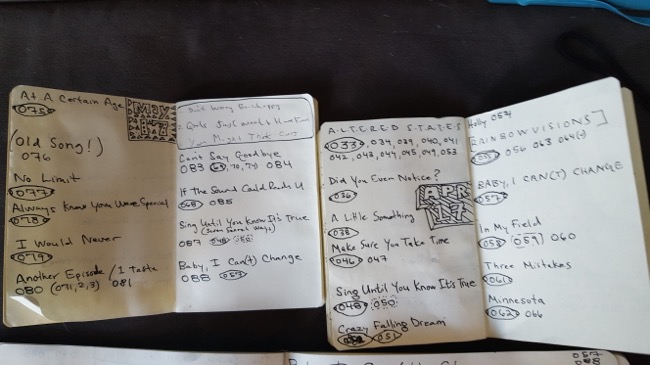 At A Certain Age
075
(Old Song!)
076
No Limit
077
Always Knew You Were Special
078
I Would Never
079
Another Episode / I Taste
080 (071,2,3) 081
MAY
Girls Just Want to Have Fun
You Might Think Cars
Can't Say Goodbye
083 084
If the Sound Could Find U
068 085
Sing Until You Know It's True
(Seven Several Ways)
087 048 050
Baby, I Can(t) Change
088 057
A.L.T.E.R.E.D S.T.A.T.E.S
033, 034, 039, 040, 041
042, 043, 044, 045, 049, 053
Did You Ever Notice?
036
APR
A Little Something
038
Make Sure You Take Time
046 047
Sing Until You Know It's True
048 050
Crazy Falling Dream
051
Holly 054
RAINBOW VISIONS]
056 063 064(+)
BABY, I CAN(T) CHANGE
057
In My Field
058 059) 060
Three Mistakes
061
Minnesota
062 066
057
088